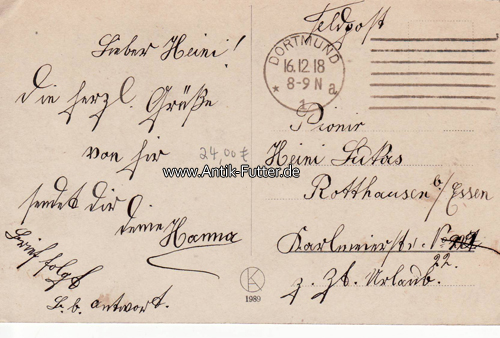 Lieber Heini!
Die herzl. Grüße
von hir
sendet dir
deine
Hanna
Brief folgt
B. b. antwort.
24,00 €
www.Antik-Futter.de
Feldpost
DORTMUND
16.12.18
8-9 N
* 1 a
Pionir
Heini Lukas
Rotthausen b/Essen
Karlmeierstr. No
22.
z. Zt. Urlaub.
K
1989